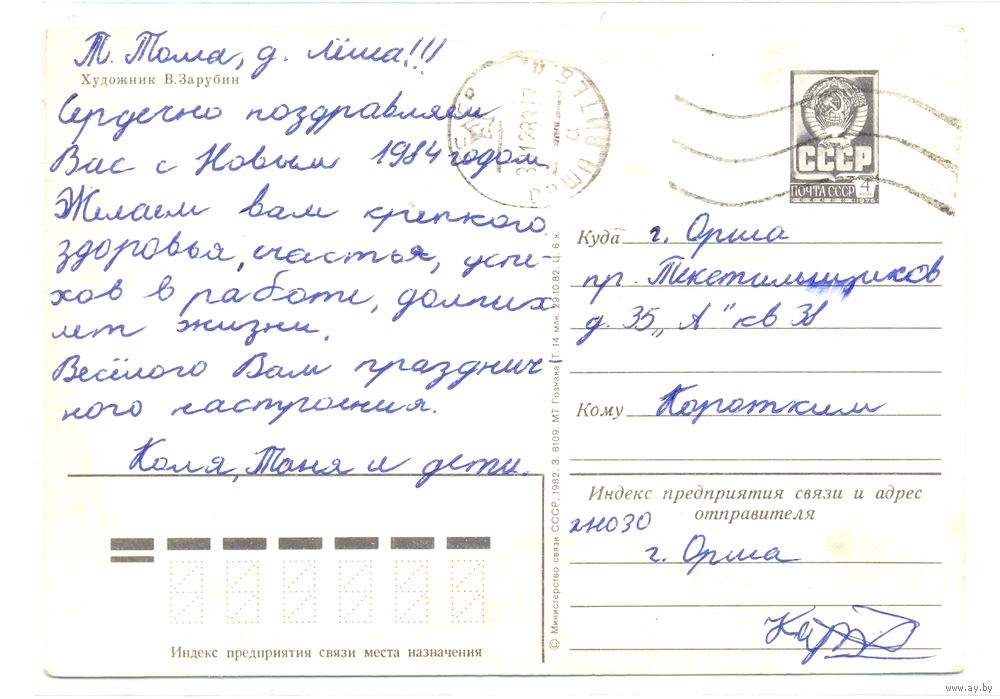 Т. Тома, д. Лёша!!!
Художник В.Зарубин
Сердечно поздравляем
Вас с Новым 1984 годом.
Желаем вам крепкого
здоровья, счастья, успе-
хов в работе, долгих
лет жизни.
Весёлого Вам празднич-
ного настроения.
Коля, Таня и дети.
Индекс предприятия связи места назначения
СССР
ПОЧТА СССР 4 КОП
1976
Куда г. Орша
пр. Текстильщиков
д. 35 „А" кв 38
Кому Коротким
Индекс предприятия связи и адрес
отправителя
г. Орша
© Министерство связи СССР, 1982. З. 8109. МТ Гознака. Т. 14 млн. 29.10.82. Ц. 6 к.
www.ay.by